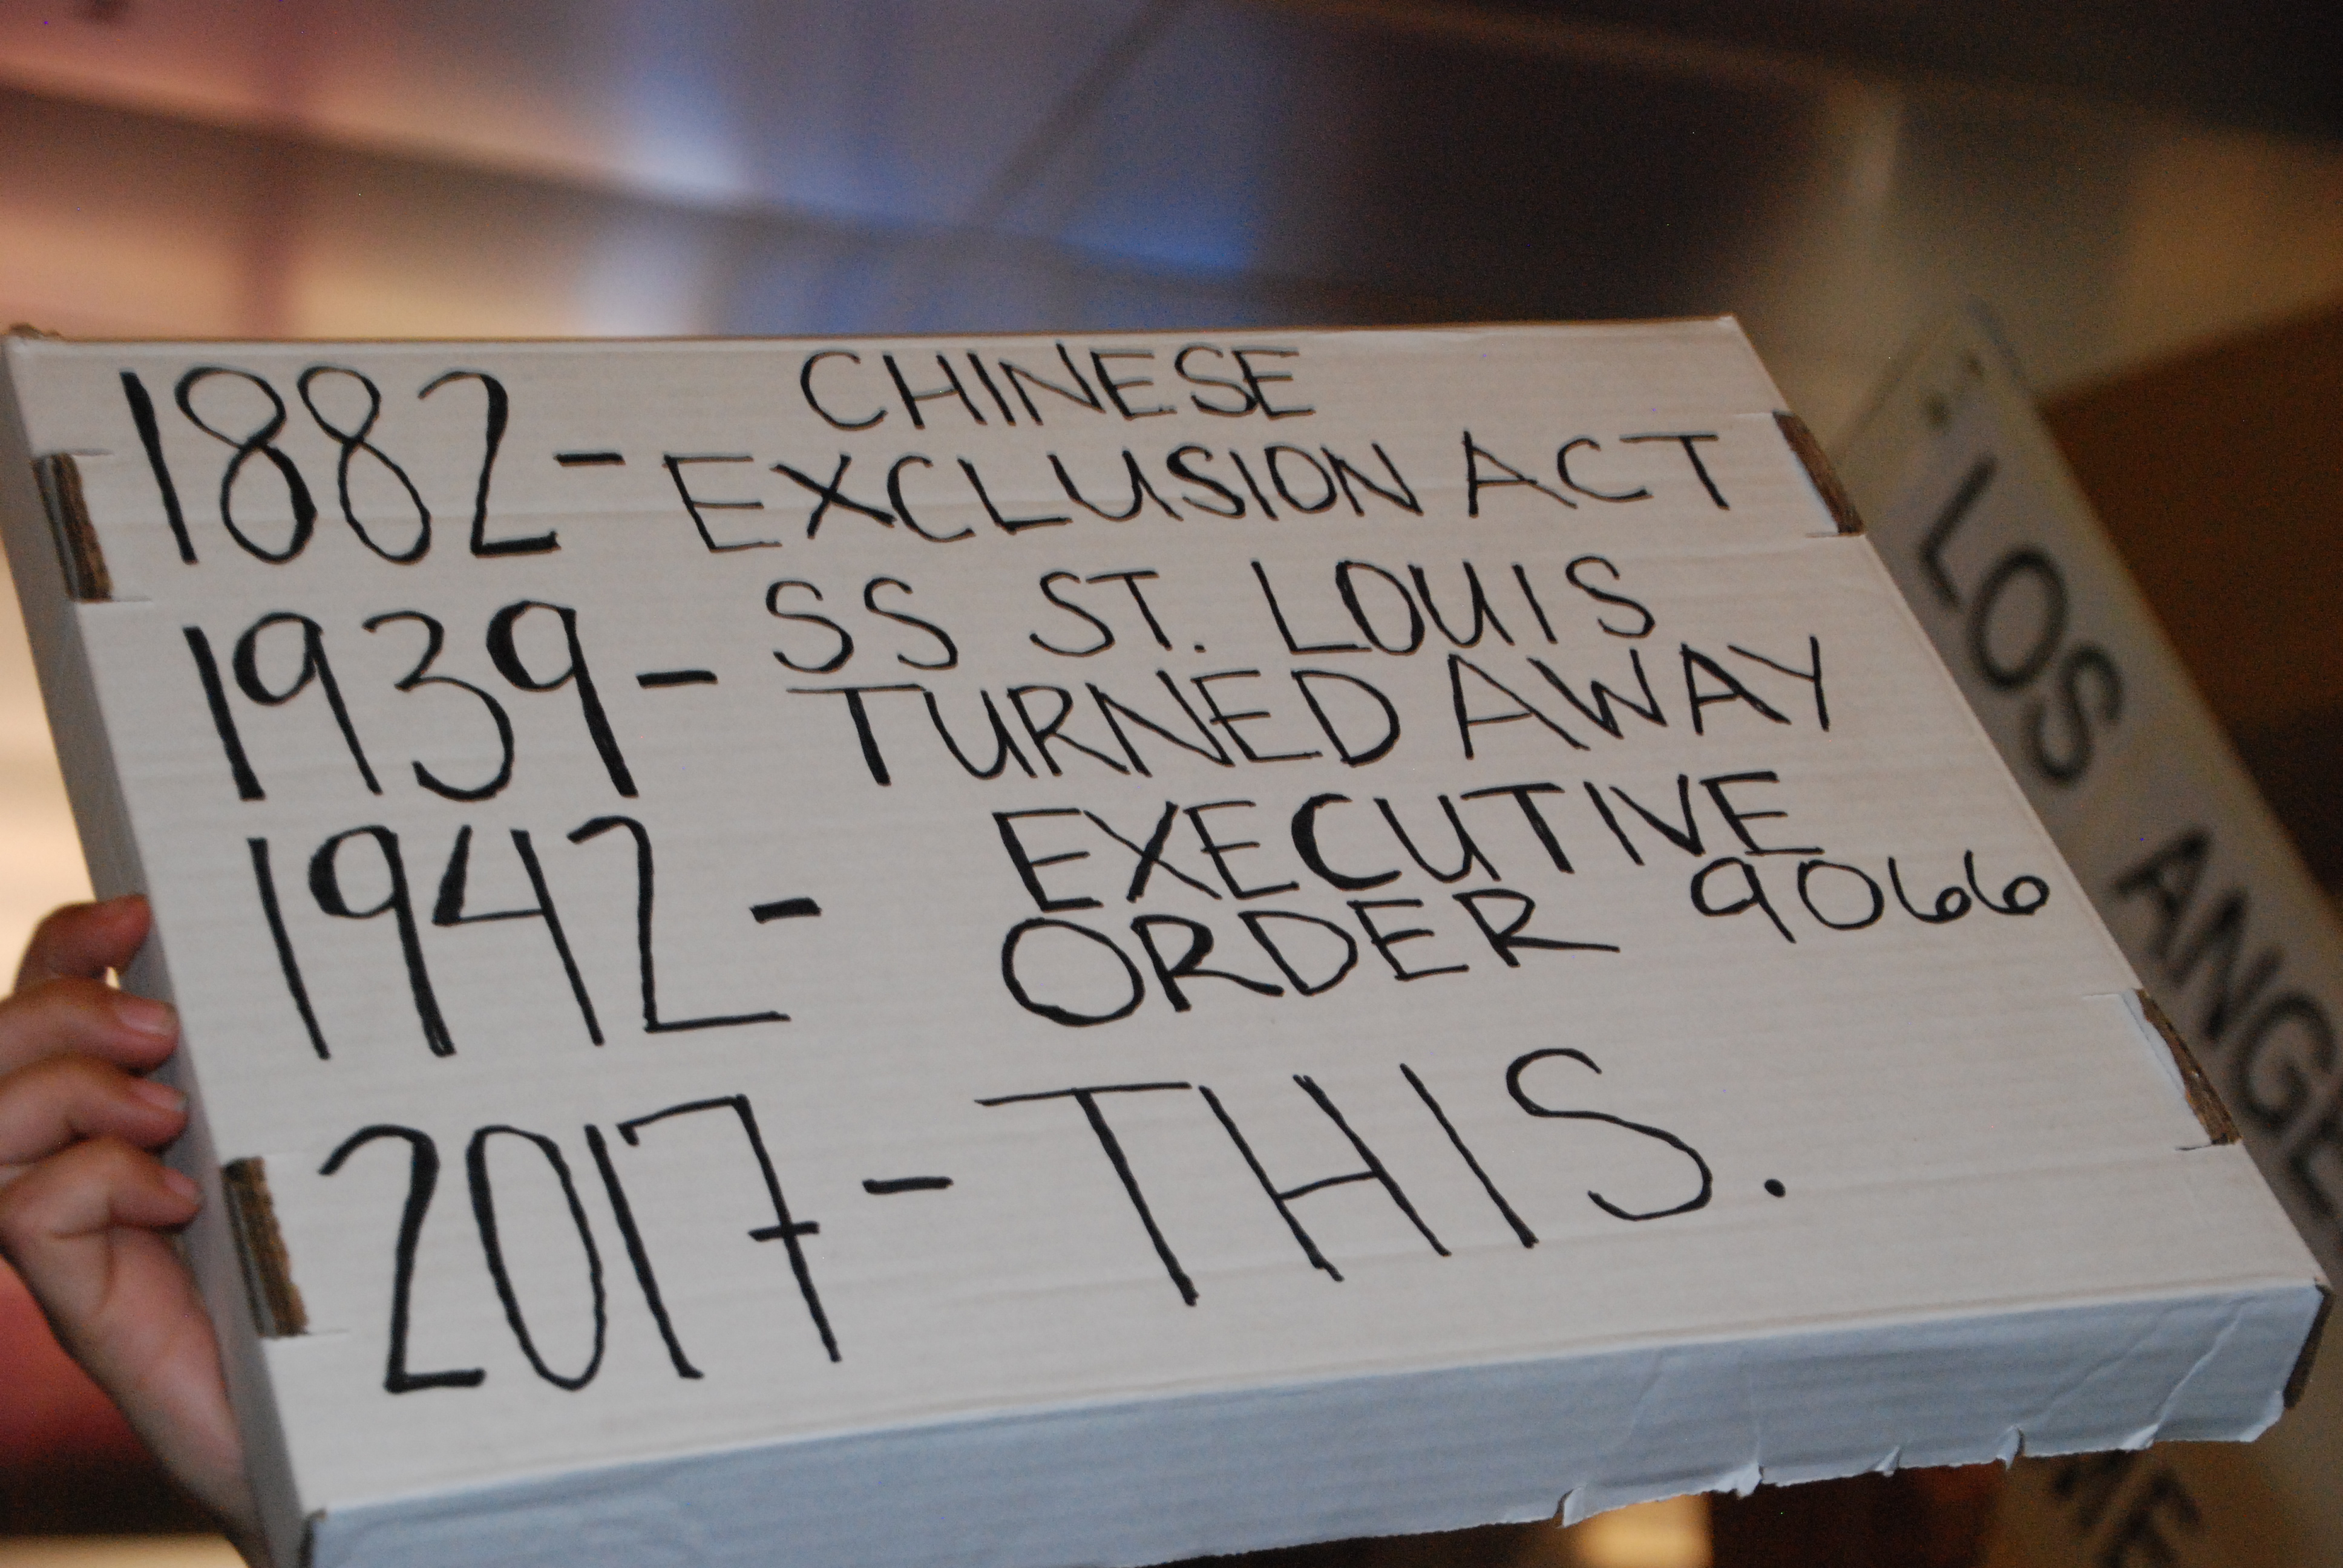 1882 - CHINESE
EXCLUSION ACT
1939 - SS ST. LOUIS
TURNED AWAY
1942 - EXECUTIVE
ORDER 9066
2017 - THIS.
LOS ANGE